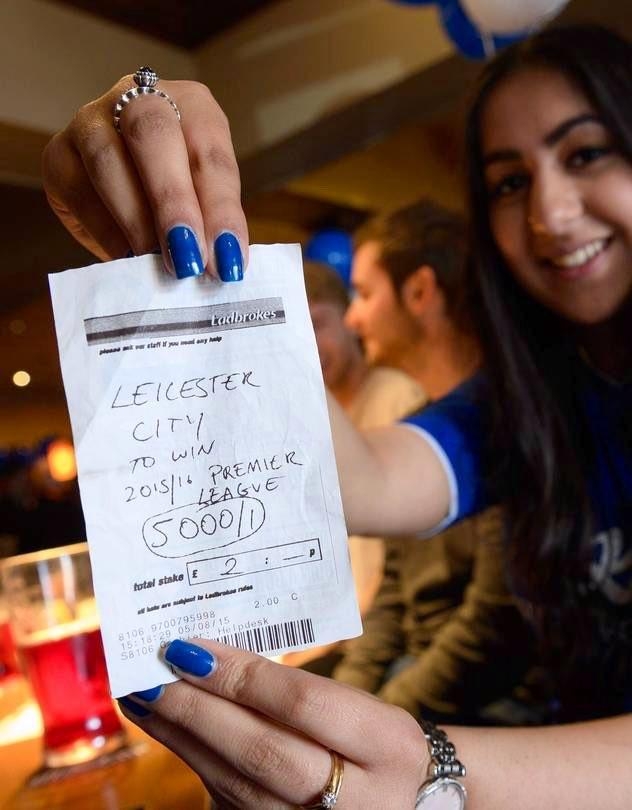 Ladbrokes
please ask our staff if you need any help
LEICESTER
CITY
TO WIN
2015/16 PREMIER
LEAGUE
5000/1
total stake £ 2 : — p
all bets are subject to Ladbrokes rules
2.00 C
8106 9700795998
15:18:29 05/08/15
S8106 Helpdesk